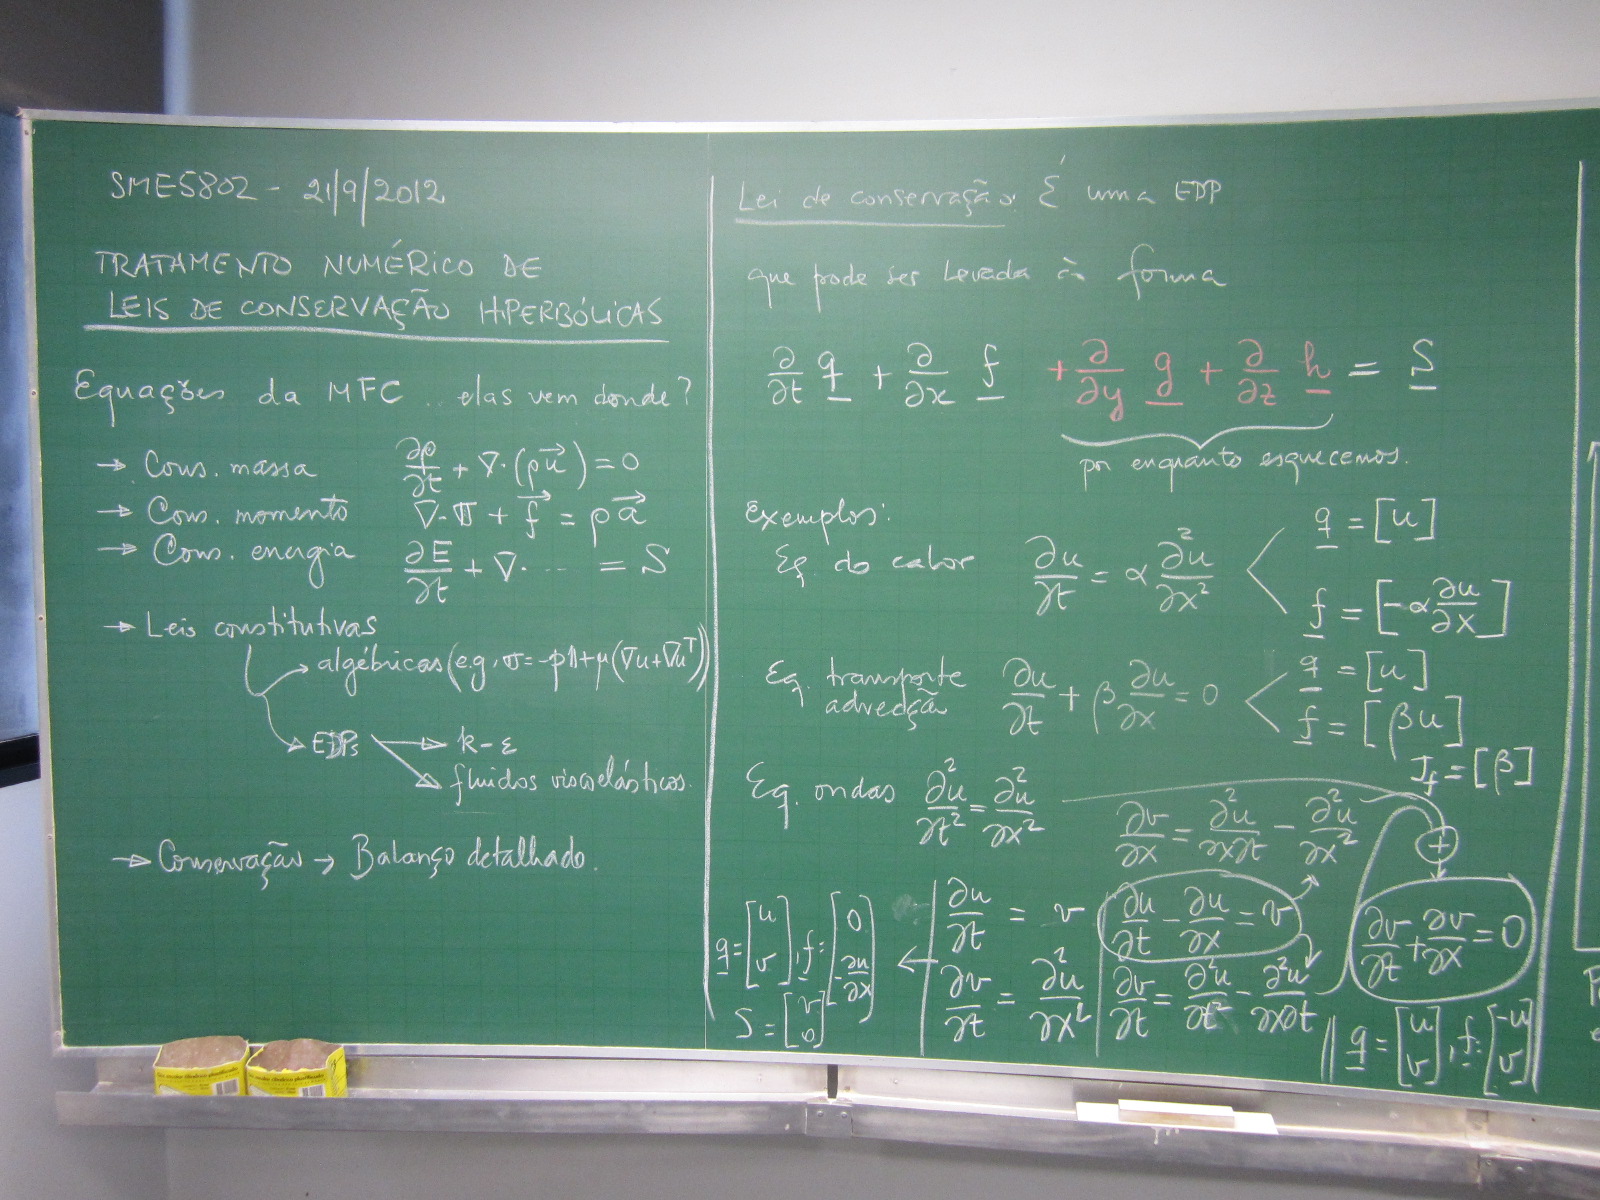 SME5802 - 21/9/2012
TRATAMENTO NUMÉRICO DE
LEIS DE CONSERVAÇÃO HIPERBÓLICAS
Equações da MFC ... elas vem donde?
→ Cons. massa ∂ρ/∂t + ∇·(ρu⃗) = 0
→ Cons. momento ∇·𝕋 + f⃗ = ρa⃗
→ Cons. energia ∂E/∂t + ∇· ... = S
→ Leis constitutivas
→ algébricas (e.g., σ = -p𝟙 + μ(∇u + ∇uᵀ))
→ EDPs → k-ε
→ fluidos viscoelásticos.
→ Conservação → Balanço detalhado.
Lei de conservação: É uma EDP
que pode ser levada à forma
∂/∂t q + ∂/∂x f + ∂/∂y g + ∂/∂z h = S
por enquanto esquecemos.
Exemplos:
Eq. do calor ∂u/∂t = α ∂²u/∂x² < q = [u]
f = [-α ∂u/∂x]
Eq. transporte
advecção ∂u/∂t + β ∂u/∂x = 0 < q = [u]
f = [βu]
J_f = [β]
Eq. ondas ∂²u/∂t² = ∂²u/∂x²
∂v/∂x = ∂²u/∂x∂t - ∂²u/∂x² +
q = [u v], f = [0 -∂u/∂x]
S = [v 0]
← ∂u/∂t = v
∂v/∂t = ∂²u/∂x²
∂u/∂t - ∂u/∂x = v
∂v/∂t = ∂²u/∂t² - ∂²u/∂x∂t
∂v/∂t + ∂v/∂x = 0
q = [u v], f = [-u v]